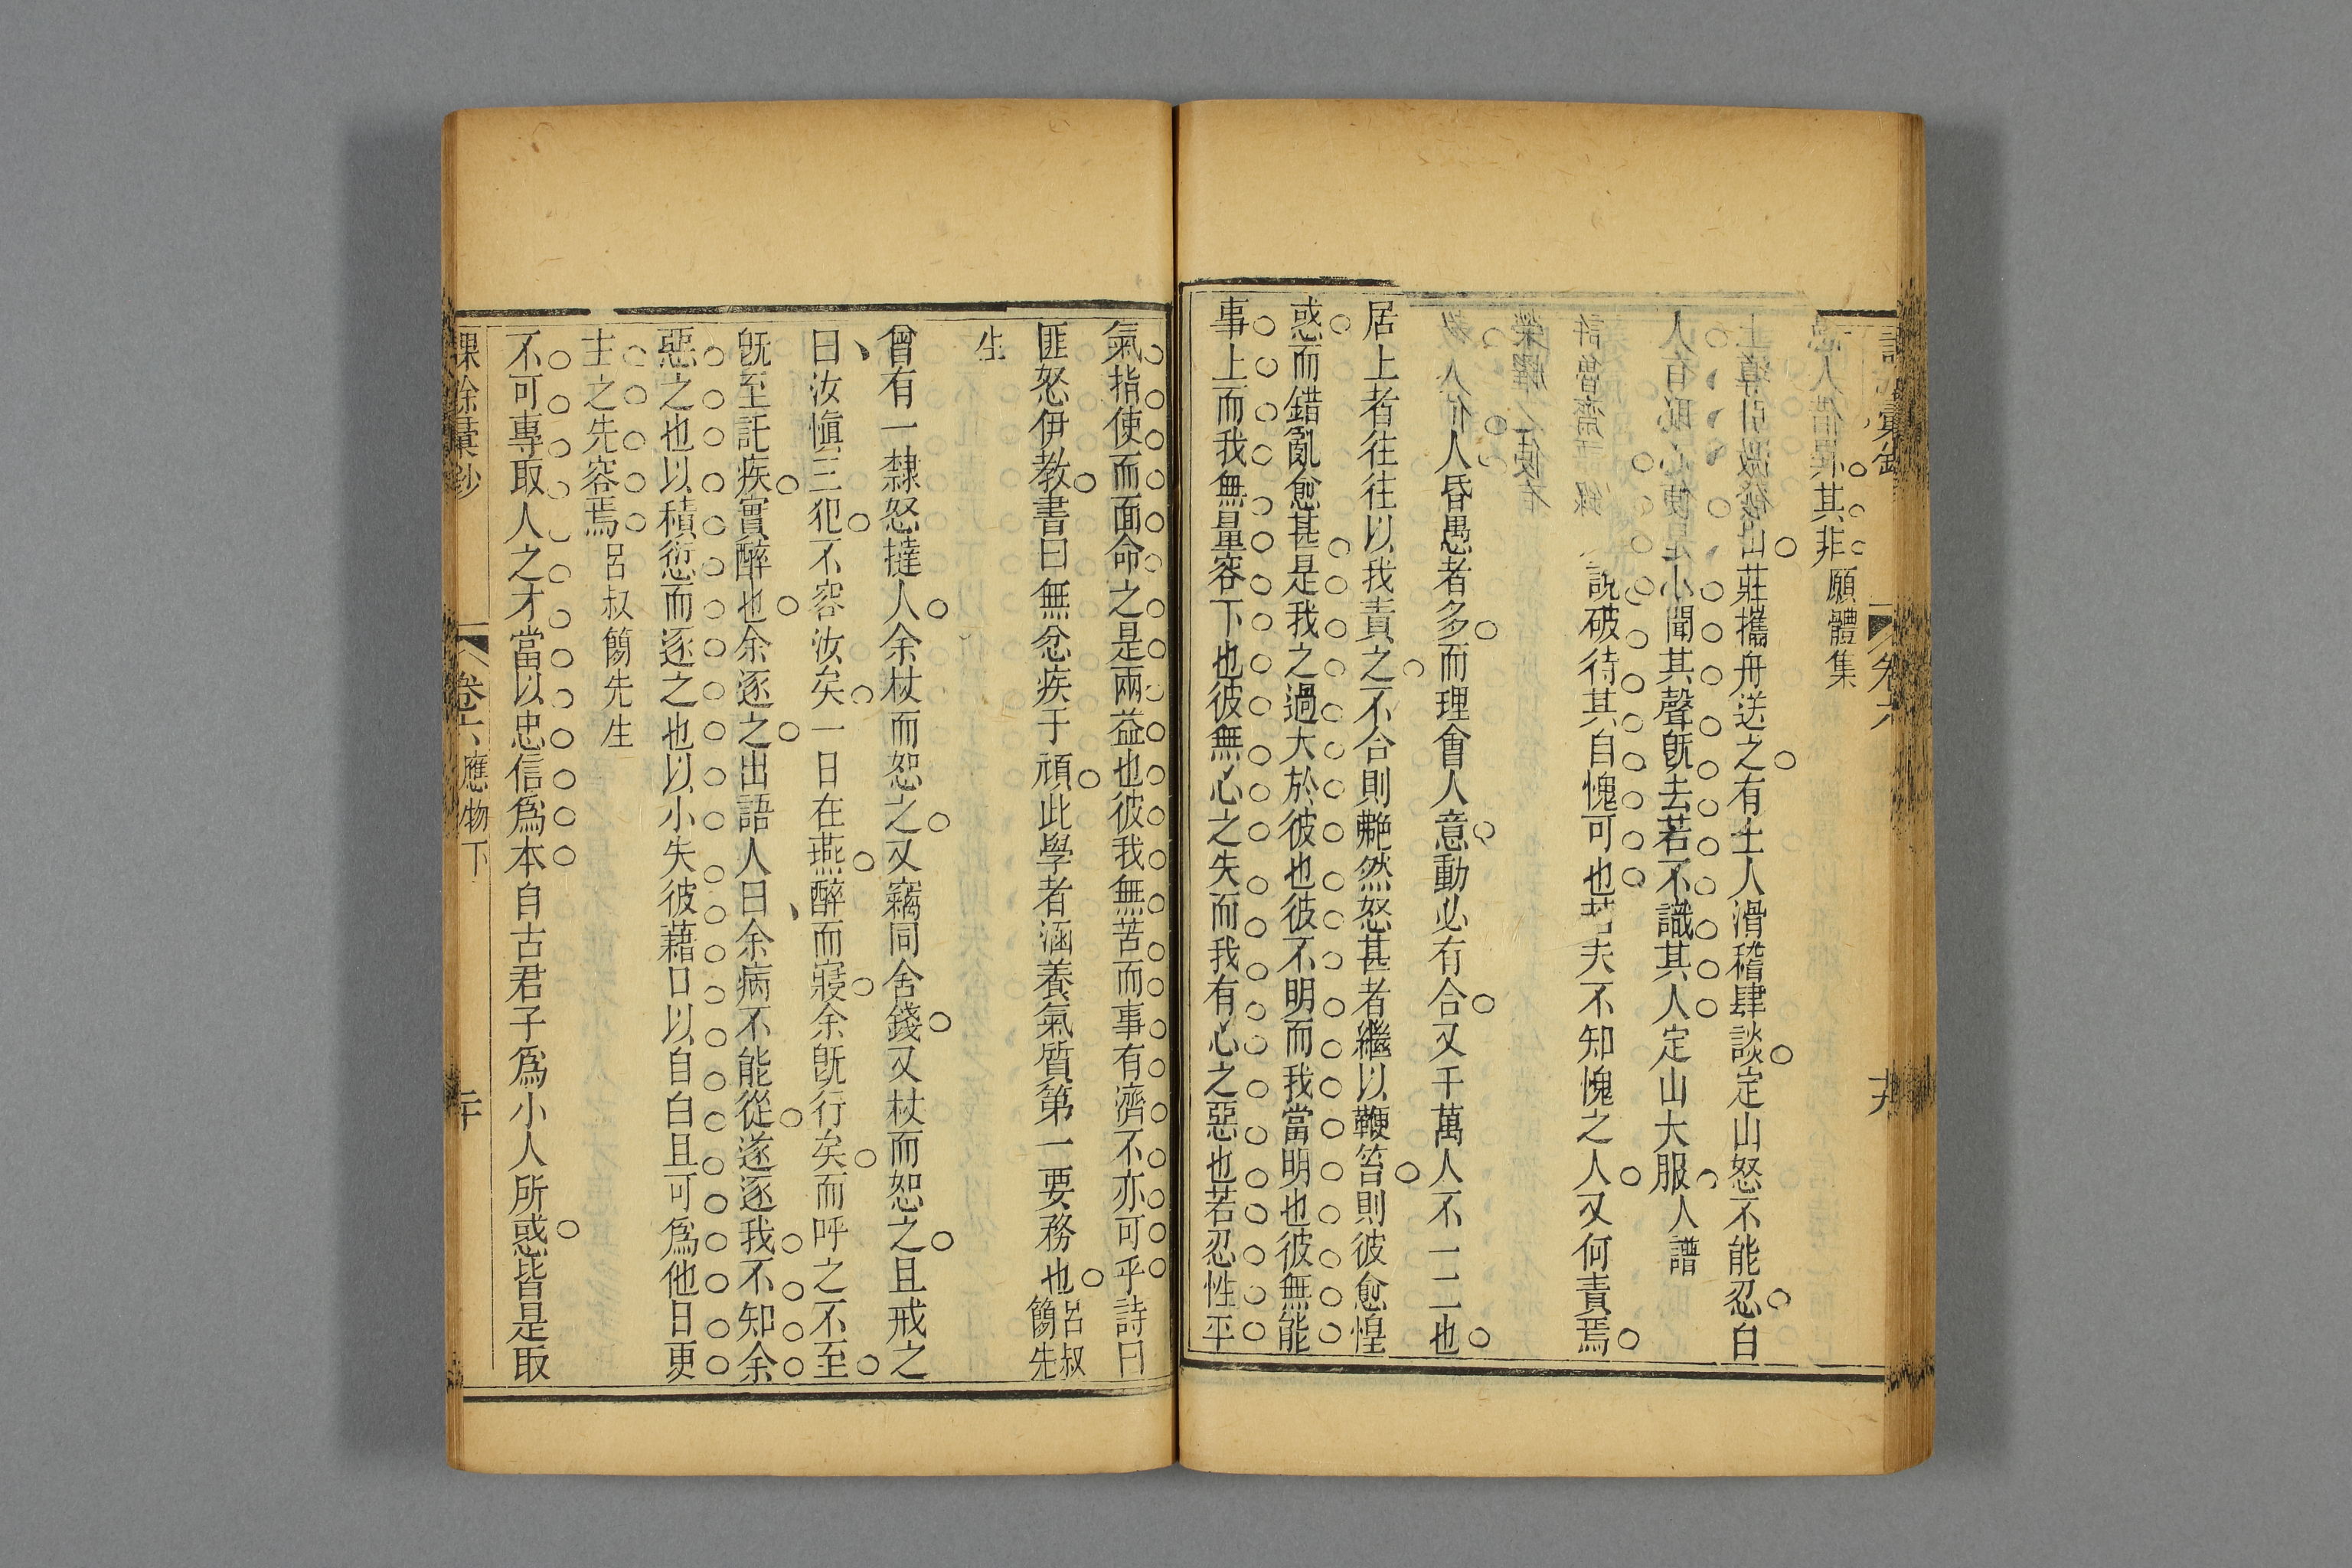 其非願體集
山莊攜舟送之有士人滑稽肆談定山怒不能忍白
小聞其聲旣去若不識其人定山大服人譜
說破待其自愧可也夫不知愧之人又何責焉
人昏愚者多而理會人意動必有合又千萬人不一二也
居上者往往以我責之不合則艴然怒甚者繼以鞭笞則彼愈惶
惑而錯亂愈甚是我之過大於彼也彼不明而我當明也彼無能
事上而我無量容下也彼無心之失而我有心之惡也若忍性平
氣指使而面命之是兩益也彼我無苦而事有濟不亦可乎詩曰
匪怒伊教書曰無忿疾于頑此學者涵養氣質第一要務也呂叔簡先
生
曾有一隸怒撻人余杖而恕之又竊同舍錢又杖而恕之且戒之
曰汝愼三犯不容汝矣一日在燕醉而寢余旣行矣而呼之不至
旣至託疾實醉也余逐之出語人曰余病不能從遂逐我不知余
惡之也以積愆而逐之也以小失彼藉口以自白且可爲他日更
主之先容焉呂叔簡先生
不可專取人之才當以忠信爲本自古君子爲小人所惑皆是取
課餘彙鈔
卷六應物下
二十